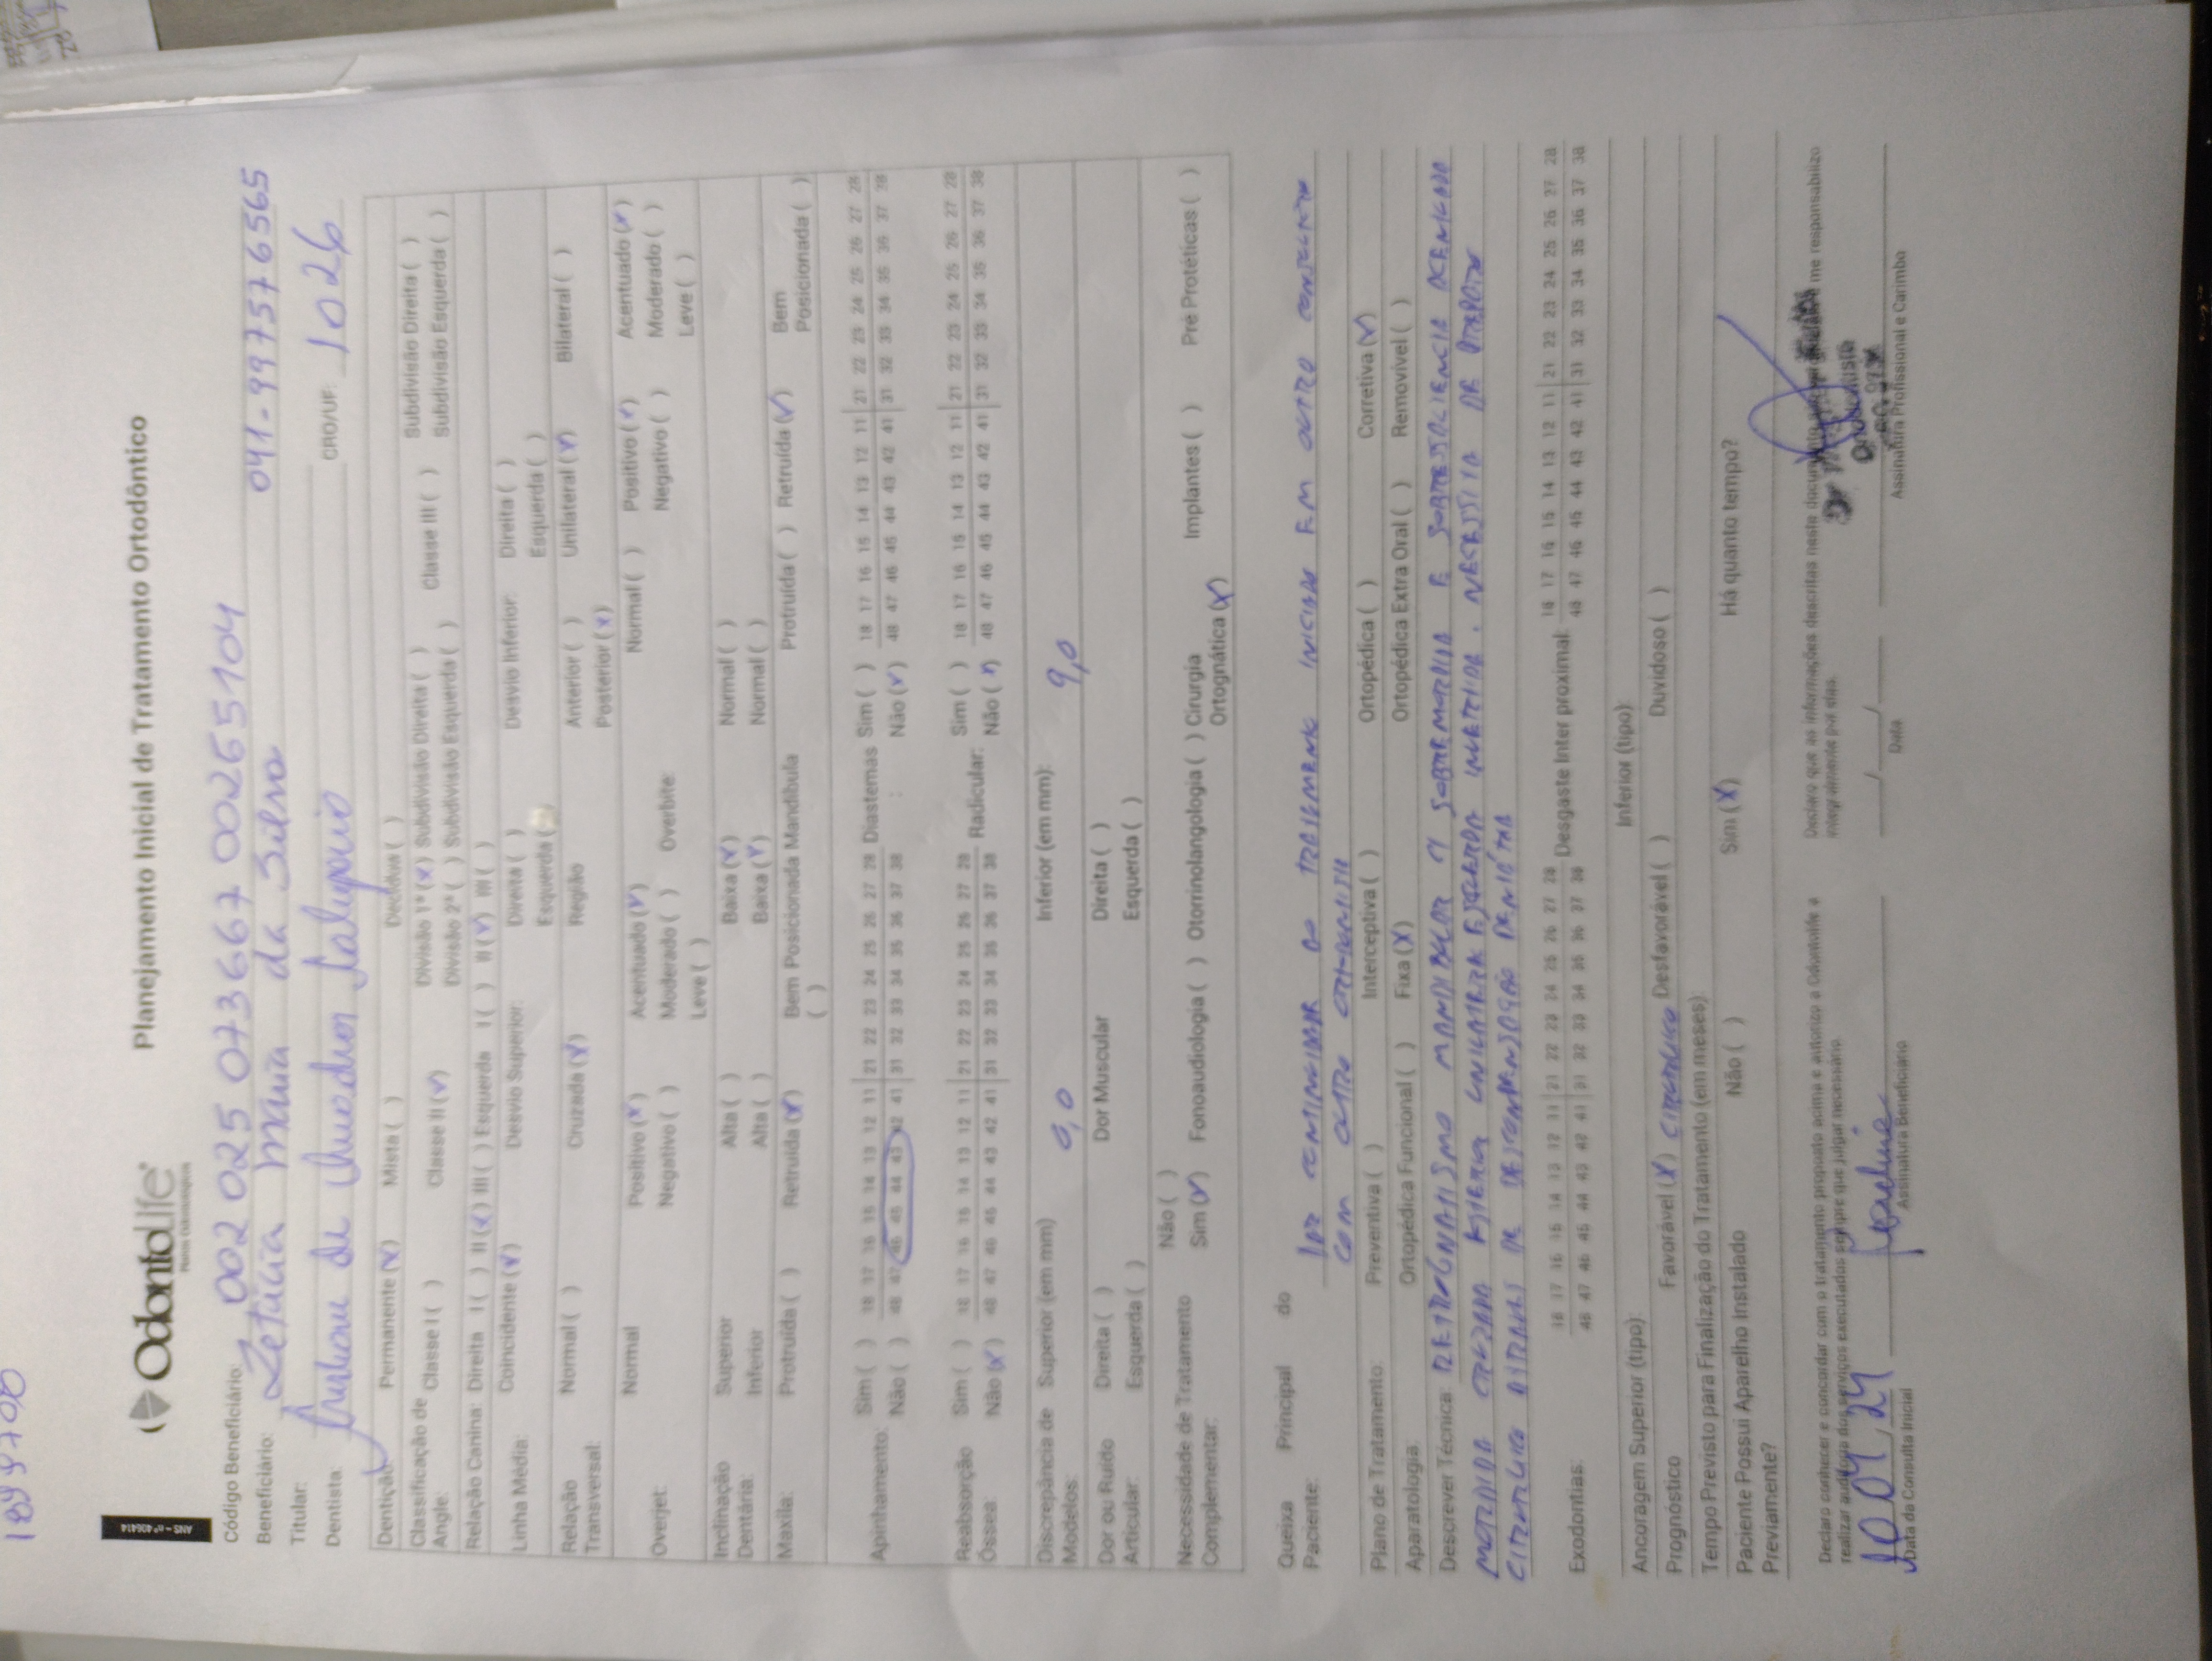 1899700
ANS - nº 406414
OdontoLife
Planejamento Inicial de Tratamento Ortodôntico
Código Beneficiário: 002 025 073667 00265104
Beneficiário: Letícia Maria da Silva 041-997576565
Titular:
Dentista: CRO/UF: 1026
Dentição: Permanente (x) Mista ( ) Decídua ( )
Classificação de Angle: Classe I ( ) Classe II (x) Divisão 1ª (x) Subdivisão Direita ( ) Classe III ( ) Subdivisão Direita ( )
Divisão 2ª ( ) Subdivisão Esquerda ( ) Subdivisão Esquerda ( )
Relação Canina: Direita I ( ) II (x) III ( ) Esquerda I ( ) II (x) III ( )
Linha Média: Coincidente (x) Desvio Superior: Direita ( ) Desvio Inferior: Direita ( )
Esquerda ( ) Esquerda ( )
Relação Transversal: Normal ( ) Cruzada (x) Região Anterior ( ) Unilateral (x) Bilateral ( )
Posterior (x)
Overjet: Normal Positivo (x) Acentuado (x) Overbite: Normal ( ) Positivo (x) Acentuado (x)
Negativo ( ) Moderado ( ) Negativo ( ) Moderado ( )
Leve ( ) Leve ( )
Inclinação Dentária: Superior Alta ( ) Baixa (x) Normal ( )
Inferior Alta ( ) Baixa (x) Normal ( )
Maxila: Protruída ( ) Retruída (x) Bem Posicionada ( ) Mandíbula Protruída ( ) Retruída (x) Bem Posicionada ( )
Apinhamento: Sim ( ) 18 17 16 15 14 13 12 11 | 21 22 23 24 25 26 27 28 Diastemas : Sim ( ) 18 17 16 15 14 13 12 11 | 21 22 23 24 25 26 27 28
Não ( ) 48 47 46 45 44 43 42 41 | 31 32 33 34 35 36 37 38 Não (x) 48 47 46 45 44 43 42 41 | 31 32 33 34 35 36 37 38
Reabsorção Óssea: Sim ( ) 18 17 16 15 14 13 12 11 | 21 22 23 24 25 26 27 28 Radicular: Sim ( ) 18 17 16 15 14 13 12 11 | 21 22 23 24 25 26 27 28
Não (x) 48 47 46 45 44 43 42 41 | 31 32 33 34 35 36 37 38 Não (x) 48 47 46 45 44 43 42 41 | 31 32 33 34 35 36 37 38
Discrepância de Modelos: Superior (em mm) 0,0 Inferior (em mm): 9,0
Dor ou Ruído Articular: Direita ( ) Dor Muscular Direita ( )
Esquerda ( ) Esquerda ( )
Necessidade de Tratamento Complementar: Não ( )
Sim (x) Fonoaudiologia ( ) Otorrinolangologia ( ) Cirurgia Ortognática (x) Implantes ( ) Pré Protéticas ( )
Queixa Principal do Paciente: continuidade ao tratamento iniciado em outro consultório
com outro ortodontista
Plano de Tratamento: Preventiva ( ) Interceptiva ( ) Ortopédica ( ) Corretiva (x)
Aparatologia: Ortopédica Funcional ( ) Fixa (x) Ortopédica Extra Oral ( ) Removível ( )
Descrever Técnica: Retrognatismo mandibular c/ sobremordida e sobressaliencia acentuada
mordida cruzada unilateral esquerda. Necessita de preparo
cirurgico de descompensação dentária
Exodontias: 18 17 16 15 14 13 12 11 | 21 22 23 24 25 26 27 28 Desgaste Inter proximal: 18 17 16 15 14 13 12 11 | 21 22 23 24 25 26 27 28
48 47 46 45 44 43 42 41 | 31 32 33 34 35 36 37 38 48 47 46 45 44 43 42 41 | 31 32 33 34 35 36 37 38
Ancoragem Superior (tipo): Inferior (tipo):
Prognóstico Favorável (x) cirurgico Desfavorável ( ) Duvidoso ( )
Tempo Previsto para Finalização do Tratamento (em meses):
Paciente Possui Aparelho Instalado Previamente? Não ( ) Sim (x) Há quanto tempo?
Declaro conhecer e concordar com o tratamento proposto acima e autorizo a Odontolife a
realizar auditoria dos serviços executados sempre que julgar necessário.
Declaro que as informações descritas neste documento e me responsabilizo
integralmente por elas.
10,04,24
Data da Consulta Inicial Assinatura Beneficiário
Data
Assinatura Profissional e Carimbo